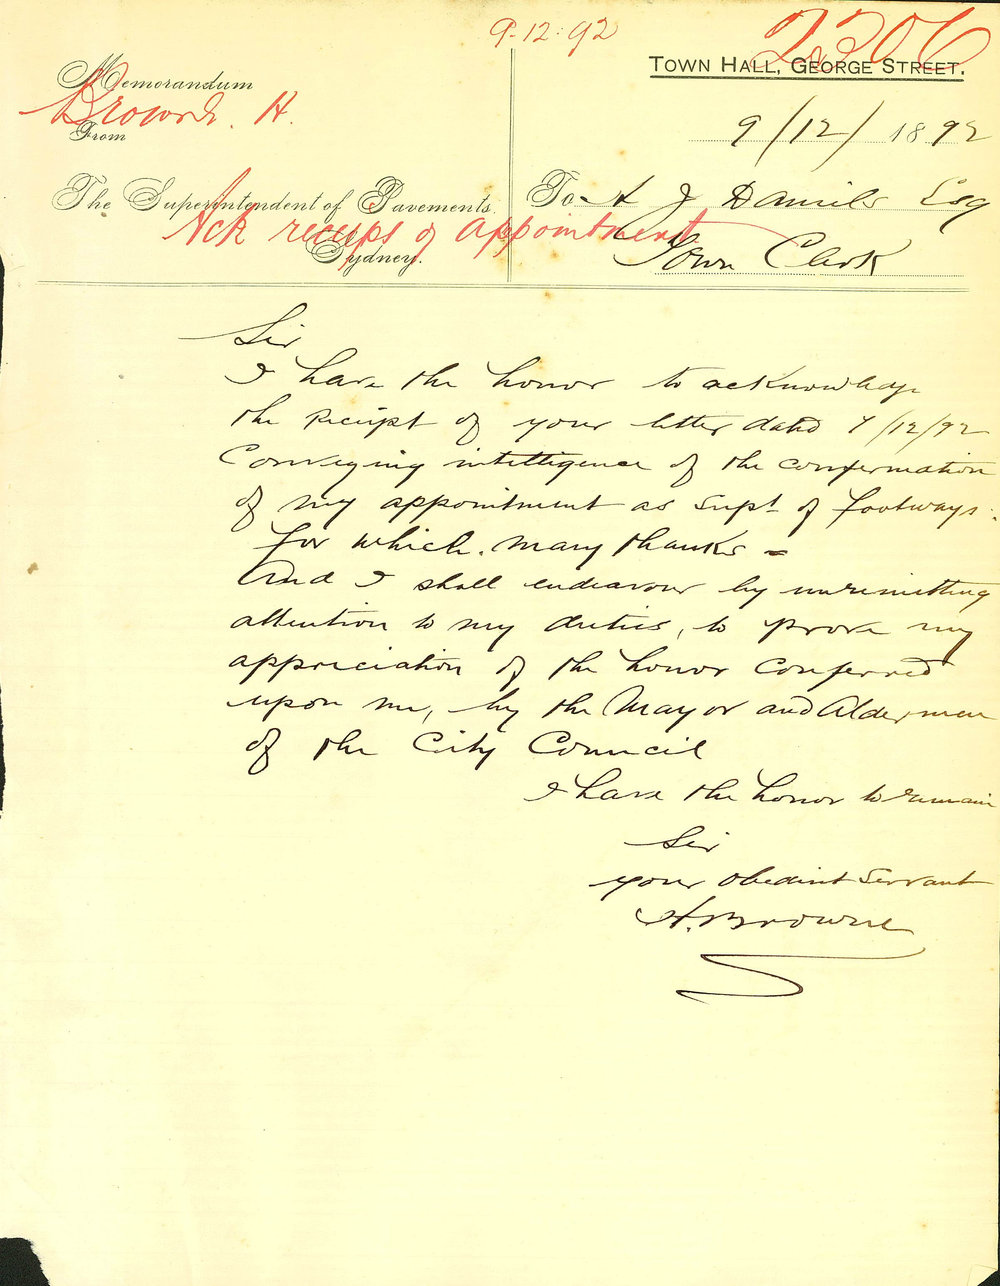 9.12.92
2206
TOWN HALL, GEORGE STREET.
Memorandum
Browne. H.
From
9/12/ 1892
The Superintendent of Pavements.
Sydney.
To H J Daniels Esq
Town Clerk
Ack receipt of appointment
Sir
I have the honor to acknowledge
the receipt of your letter dated 7/12/92
Conveying intelligence of the confermation
of my appointment as Supt of footways.
for which. many thanks =
And I shall endeavour by unremitting
attention to my duties, to prove my
appreciation of the honor conferred
upon me, by the Mayor and Aldermen
of the City Council
I have the honor to remain
Sir
your obedint Servant
H. Browne